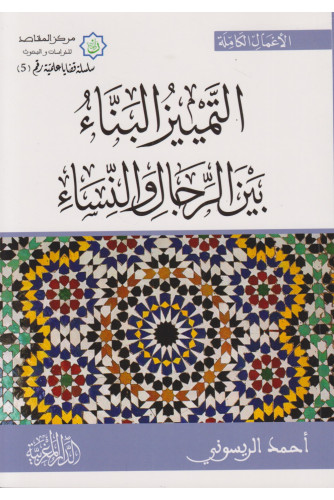 الأعمال الكاملة
مركز المقاصد
للدراسات والبحوث
سلسلة قضايا علمية رقم (5)
التَّمْيِيزُ البَنَّاءُ
بَيْنَ الرِّجَالِ وَالنِّسَاءِ
أحمد الريسوني
الدار المغربية